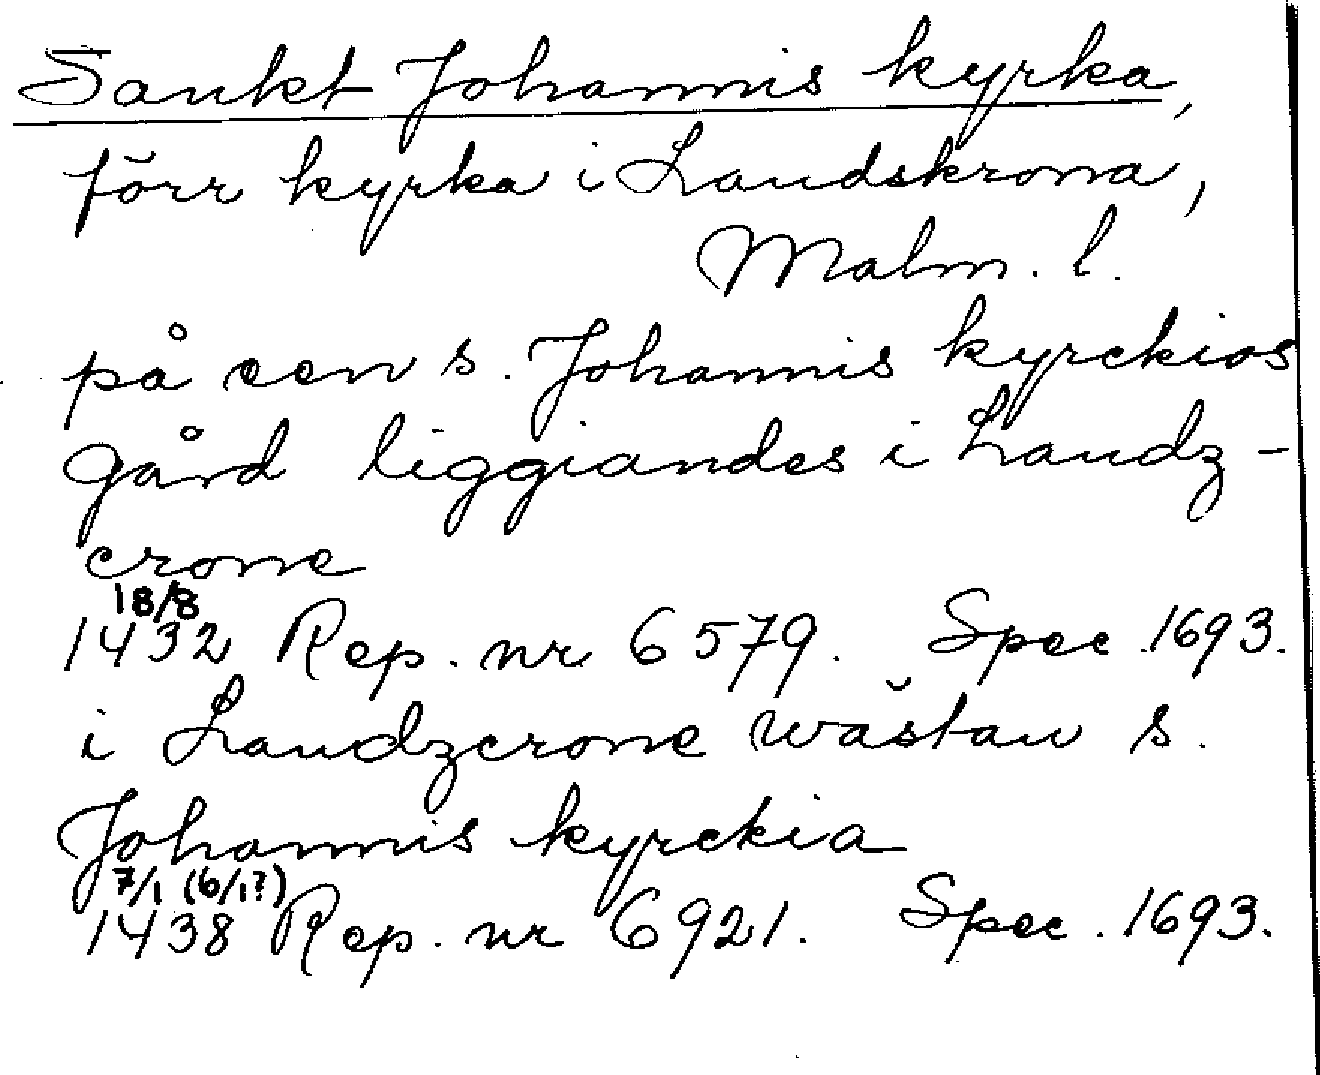 Sankt Johannis kyrka,
förr kyrka i Landskrona,
Malm. l.
på een s. Johannis kyrckios
gård liggiandes i Landz-
crone
18/8
1432 Rep. nr 6579. Spec. 1693.
i Landzcrone wästan s.
Johannis kyrckia
7/1 (6/1?)
1438 Rep. nr 6921. Spec. 1693.